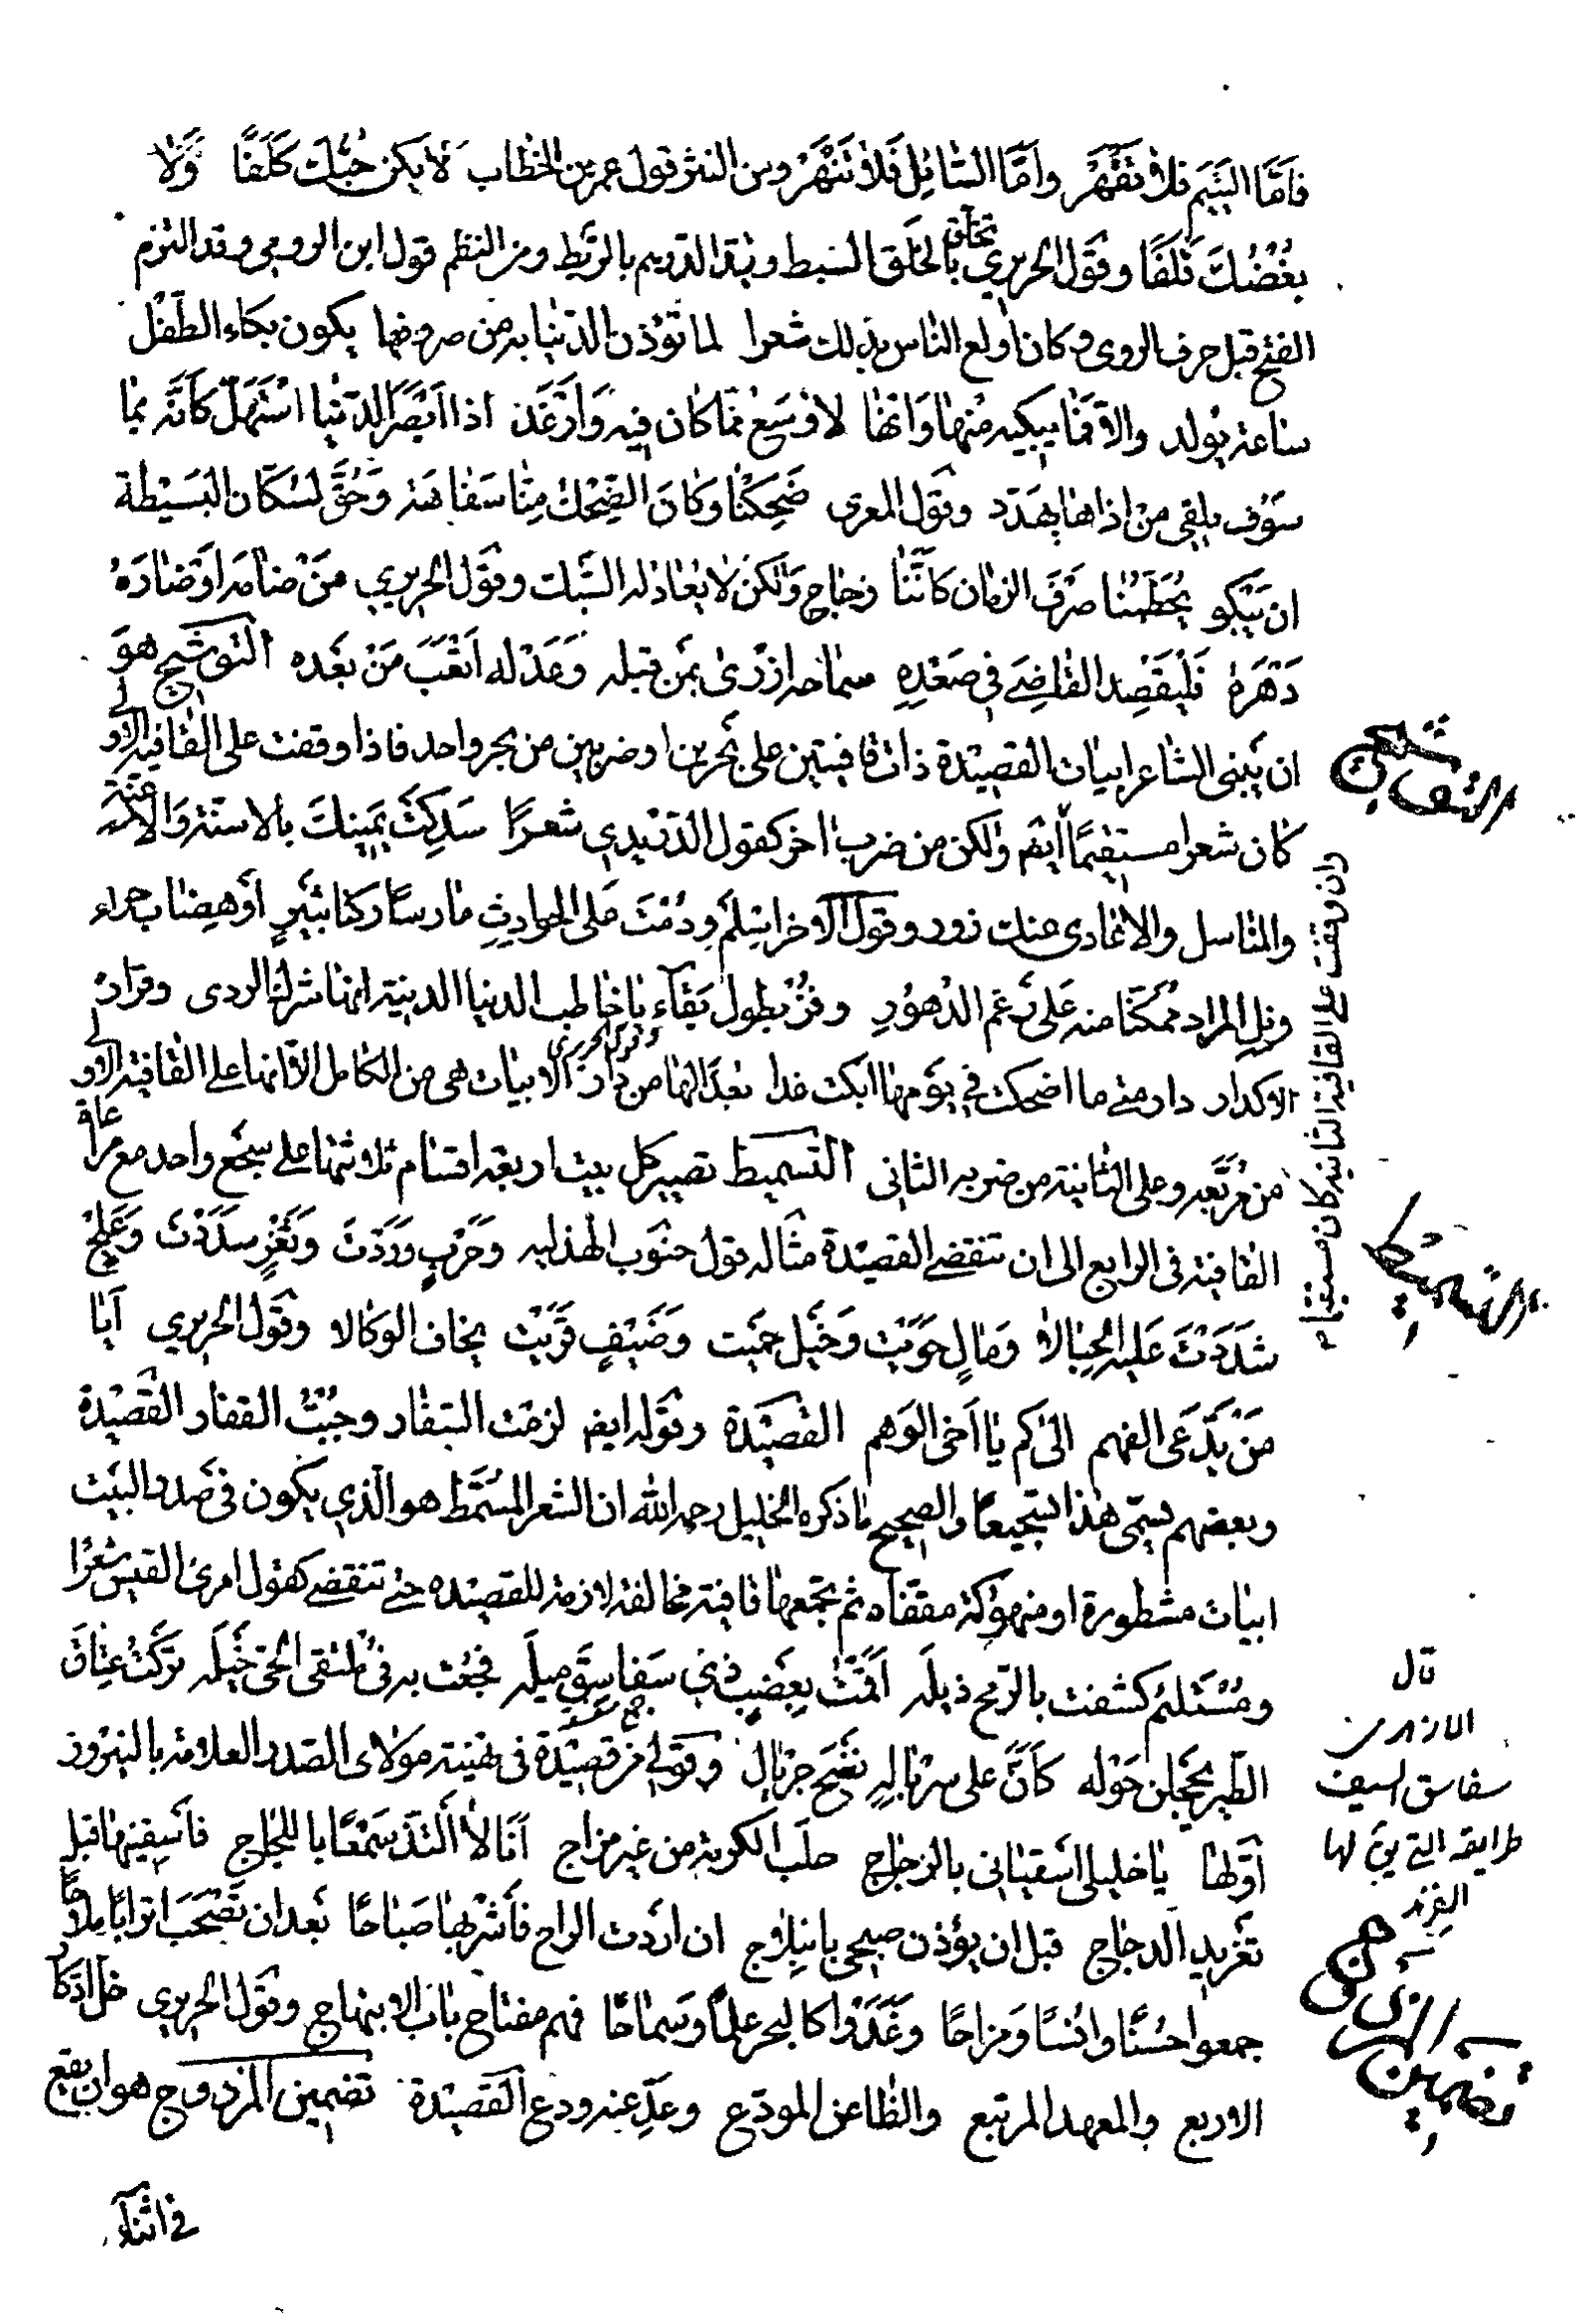 فَاَمَّا اليَتِيمَ فلا تَقْهَرْ واَمَّا السَّائِلَ فَلا تَنْهَرْ ومن النثر قول عمر بن الخطاب لا يكن حُبُّكَ كَلَفًا وَلا
بُغْضُكَ تَلَفًا وقَول الحريري تخلق بالخَلَق السَبط ومن النظم قول ابن الرومي وقد التزم
الفتح قبل حرف الروى وكان اولع الناس بذلك شعرا لما تُؤذن الدنيا به من صروفها يكون بكاء الطفل
ساعة يولد والا فما يبكيه مِنْها وَانها لاَوْسَعُ مما كان فيه وَاَرْغَد اذا اَبْصَرَ الدنيا استَهَلّ كَاَنَّه بما
سَوف يلقى من اذاها يهدّد وقول المعرى ضَحِكْنا وَكانَ الضِحْكُ مِنّا سَفاهَة وَحُقَّ لسُكّان البَسِيْطة
ان يَبْكو يُحَطِّمُنا صَرْفُ الزمان كاَنَّنا زجاج وَلكن لا يُعاد له السَبك وقول الحريري مَنْ ضامه اَوضارَهُ
دَهْرَهُ فَلْيقصِد القاضِيَ في صَعْدِهِ سماحه ازْرى بمن قبله وَعَدْله اَتْعَبَ مَنْ بَعْده التوشيح هوَ
ان يَبْنى الشاعر ابيات القصيدة ذات قافيتين على بحرين او ضربين من بحر واحد فاذا وقفت على القافية الاولى
كان شعرا مستقيمًا وان وقفت على القافية الثانية كان مستقيما ايضا ولكن من ضرب اخر كقول شعرًا سَدِكَتْ يَمِينكَ بالاسنة والاعنة
والمناسل والاعادى عنك زور وقول الاخر اسْلَم وَدُمْتَ على الحوادِثِ ما رسا ركنا ثَبيرٍ اَوْهِضاب حراء
ونِلِ المراد مُمكّنًا منه عَلى رَغم الدُهوُرِ وفُزْ بطول بَقاءِ وقول الحريرى يا خاطب الدنيا الدنية انها شرك الردى وقرارة
الاكدار دار متى ما اضحكت فى يَومها ابكت غدا بُعدًا لها من دار الابيات هى من الكامل الا انها على القافية الاولى
من مُربَّعه وعلى الثانية من ضربه الثانى التسميط تصيير كل بيت اربعة اقسام ثلاثتها على سجع واحد مع مراعاة
القافية فى الرابع الى ان تنقضى القصيدة مثاله قول جنوب الهذليه وَحَرْبٍ ورَدَتَ وثَغْرٍ سَدَدْتَ وَعِلجٍ
شَدَدْتَ عَليه الحِبالا وَمالٍ حَوَيْتَ وَخَيلٍ حميت وَضَيفٍ قَرَيْت يخاف الوكالا وقول الحريري اَيا
مَنْ يَدَّعى الفهم الى كم يا اَخى الوَهم القصيْدة وقوله ايضا لزمت السِفار وجُبْتُ القفار القصيْدة
وبعضهم يسمّى هذا تسجيعًا والصحيح ما ذكره الخليل رحمه الله ان الشعر المسَمَّط هو الذي يكون فى صدر البيت
ابيات مشطورة او منهوكة مقفاه ثم تجمعها قافية مخالفة لازمة للقصيده حتى تنقضى كقول امرئ القيس شعرًا
ومُسْتَلئم كشفت بالرمح ذيله اَقَمْتُ بِعَضبٍ ذي سَفاسِقَ ميله فجعت به فى ملتقى الحى خَيْله تركتُ عِتاق
الطَير يَحجلن حَوْله كأنَّ على سرباله نَضْحَ جرْيالِ وقولى من قصيْدة فى تهنية مولاى الصدر العلامة بالنيروز
اوّلها يا خليلى اسقيانى بالزجاج حلَب الكرمة من غير مزاج اَنا لا اَلْتَذّ سَمْعًا باللجاج فاسقِينها قبل
تغريد الدجاج قبل ان يؤذن صبحى بانبلاج ان اردت الراح فاَشْرَبها صَباحًا بَعد ان تصْحَبَ اترابًا ملاحًا
جمعوا حسْنًا وانسًا ومزاحًا وغَدَوْا كالبحر علمًا وسَماحًا فهم مفتاح باب الابتهاج وقول الحريرى خل ادّكار
الاربع والمعهد المرتبع والظاعن المودّع وعدِّ عنه ودع القصيْدة تضمين المزدوج هو ان يقع
فى اثناء
التسميط
قال
الازهرى
سفاسق السيف
طرايقه التى يقال لها
الفرند
تضمين المزدوج